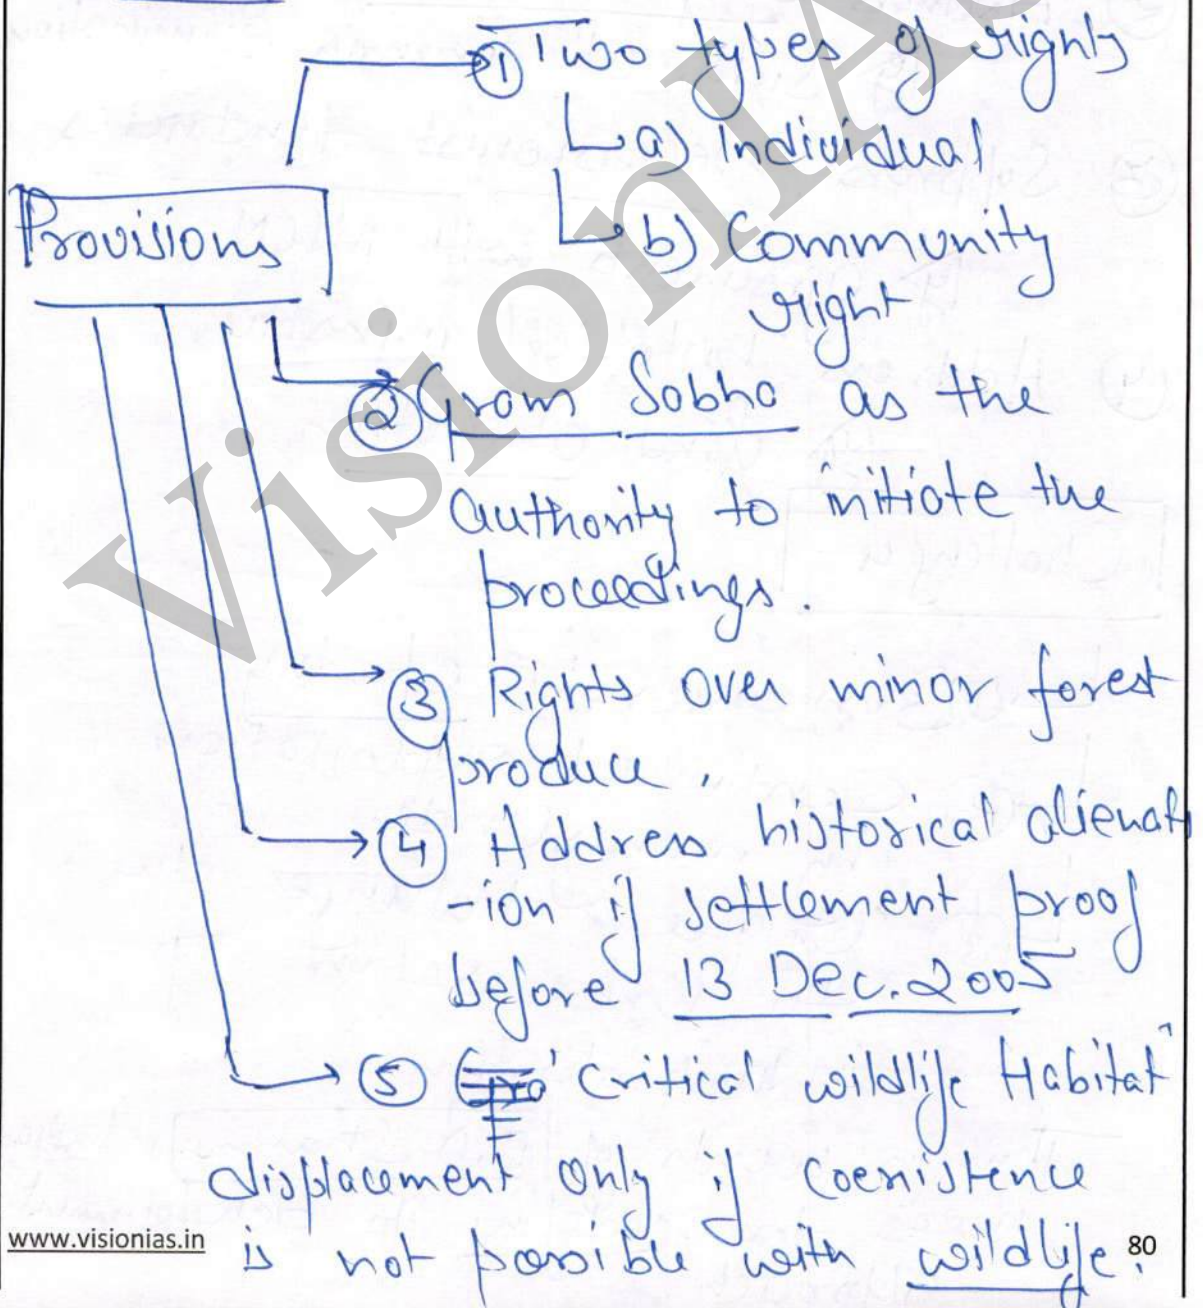 ① Two types of rights
a) Individual
Provisions
b) Community
right
② Gram Sabha as the
authority to initiate the
proceedings.
③ Rights over minor forest
produce.
④ Address historical alienat
-ion if settlement proof
before 13 Dec. 2005
⑤ 'Critical wildlife Habitat'
displacement only if coexistence
is not possible with wildlife.
www.visionias.in
80
VisionIA